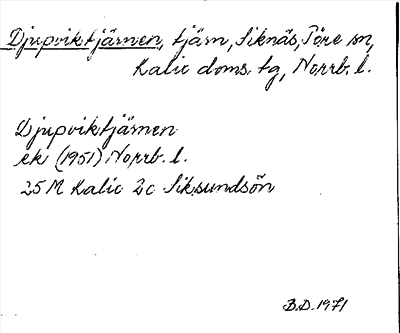 Djupviktjärnen, tjärn, Siknäs, Töre sn,
Kalix doms. tg, Norrb. l.
Djupviktjärnen
ek (1951) Norrb. l.
25 M Kalix 2c Siksundsön
B.D. 1971